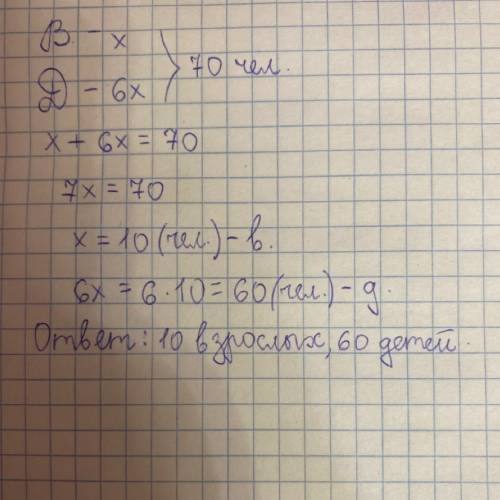 В. – x
Д – 6x } 70 чел.
x + 6x = 70
7x = 70
x = 10 (чел.) – в.
6x = 6 · 10 = 60 (чел.) – д.
Ответ: 10 взрослых, 60 детей.